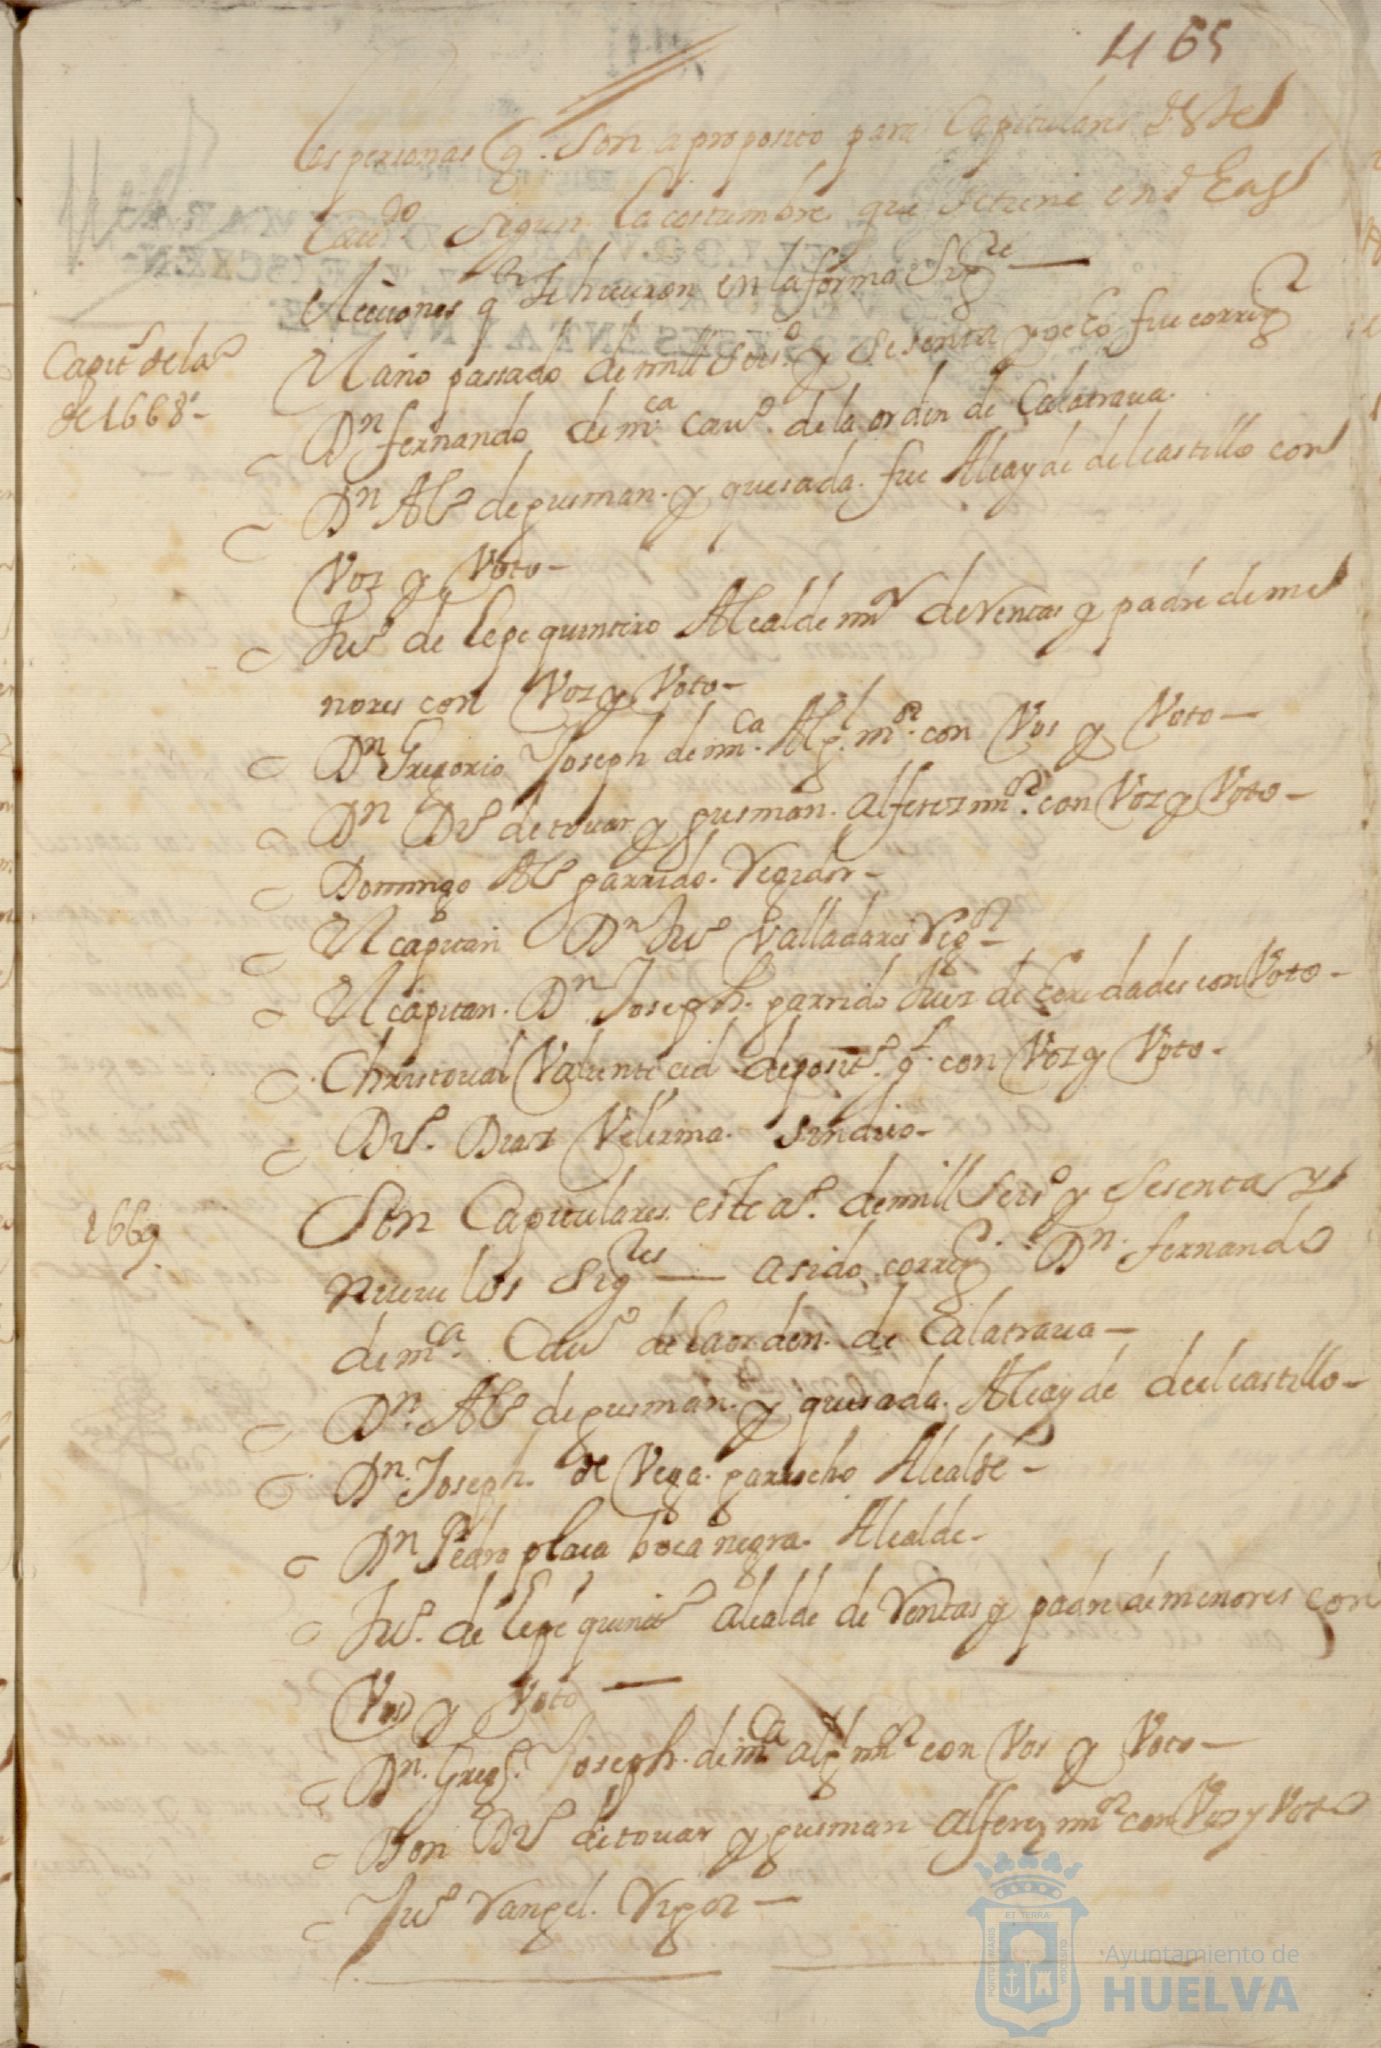 465
las personas q. son a proposito para Capitulares deste
Cau.do segun la costumbre que se tiene en las
elecciones q. se hicieron en la forma sig.te —
Capit.s de la.o
de 1668 -
El año passado de mill seis.o y sesenta y ocho fue corrig.r
Dn fernando de m.ca Cau.o de la orden de Calatraua.
Dn Al.o de gusman y quesada. fue Alcayde del castillo con
Voz y Voto -
Ju.o de lepe quintero Alcalde m.r de Ventas y padre de me
nores con Voz y Voto -
Dn Gregorio Joseph de m.ca Alg.l m.or con Vos y Voto -
Dn D.o de touar y gusman. alferez m.or con Voz y Voto -
Domingo Al.o garrido. Regidor -
El capitan Dn Ju.o Valladares Reg.or -
El capitan. Dn Joseph. garrido Juez de heredades con Voto -
Christoual Valiente cid deposit.o g.l con Voz y Voto -
D.o Diaz Velerma. sindico -
1669
Son Capitulares. este a.o de mill seis.o y sesenta y
nueue los sig.tes — a sido correg.r Dn. fernando
de m.ca Cau.o de la orden. de Calatraua -
Dn. Al.o de gusman. y quesada. Alcayde del castillo -
Dn. Joseph. de Vega. garrocho Alcalde -
Dn Pedro placa boca negra. Alcalde -
Ju.o de lepe quint.o alcalde de Ventas y padre de menores con
Vos y Voto —
Dn. Greg.o Joseph. de m.ca alg.l m.or con Vos y Voto -
Don D.o de touar y gusman alferez m.or con Voz y Voto
Ju.o Rangel. Rigor —
PORTUS MARIS
ET TERRAE
CUSTODIA
Ayuntamiento de
HUELVA